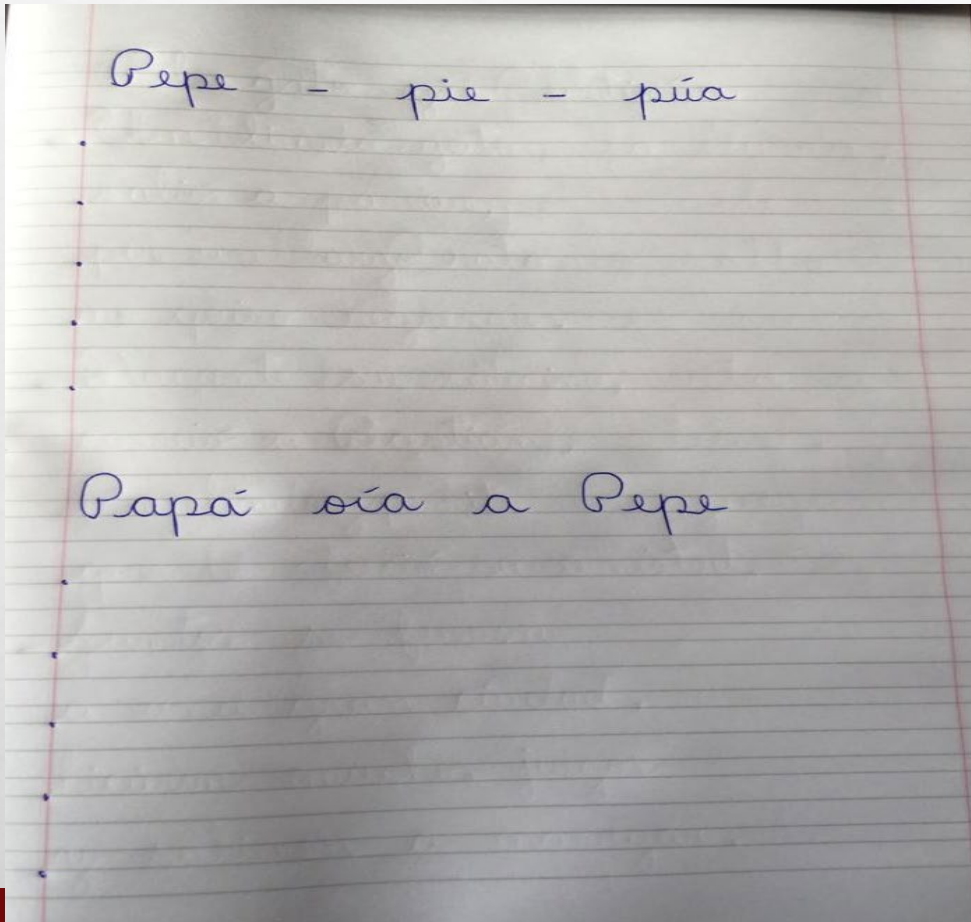 Pepe - pie - púa
Papá oía a Pepe